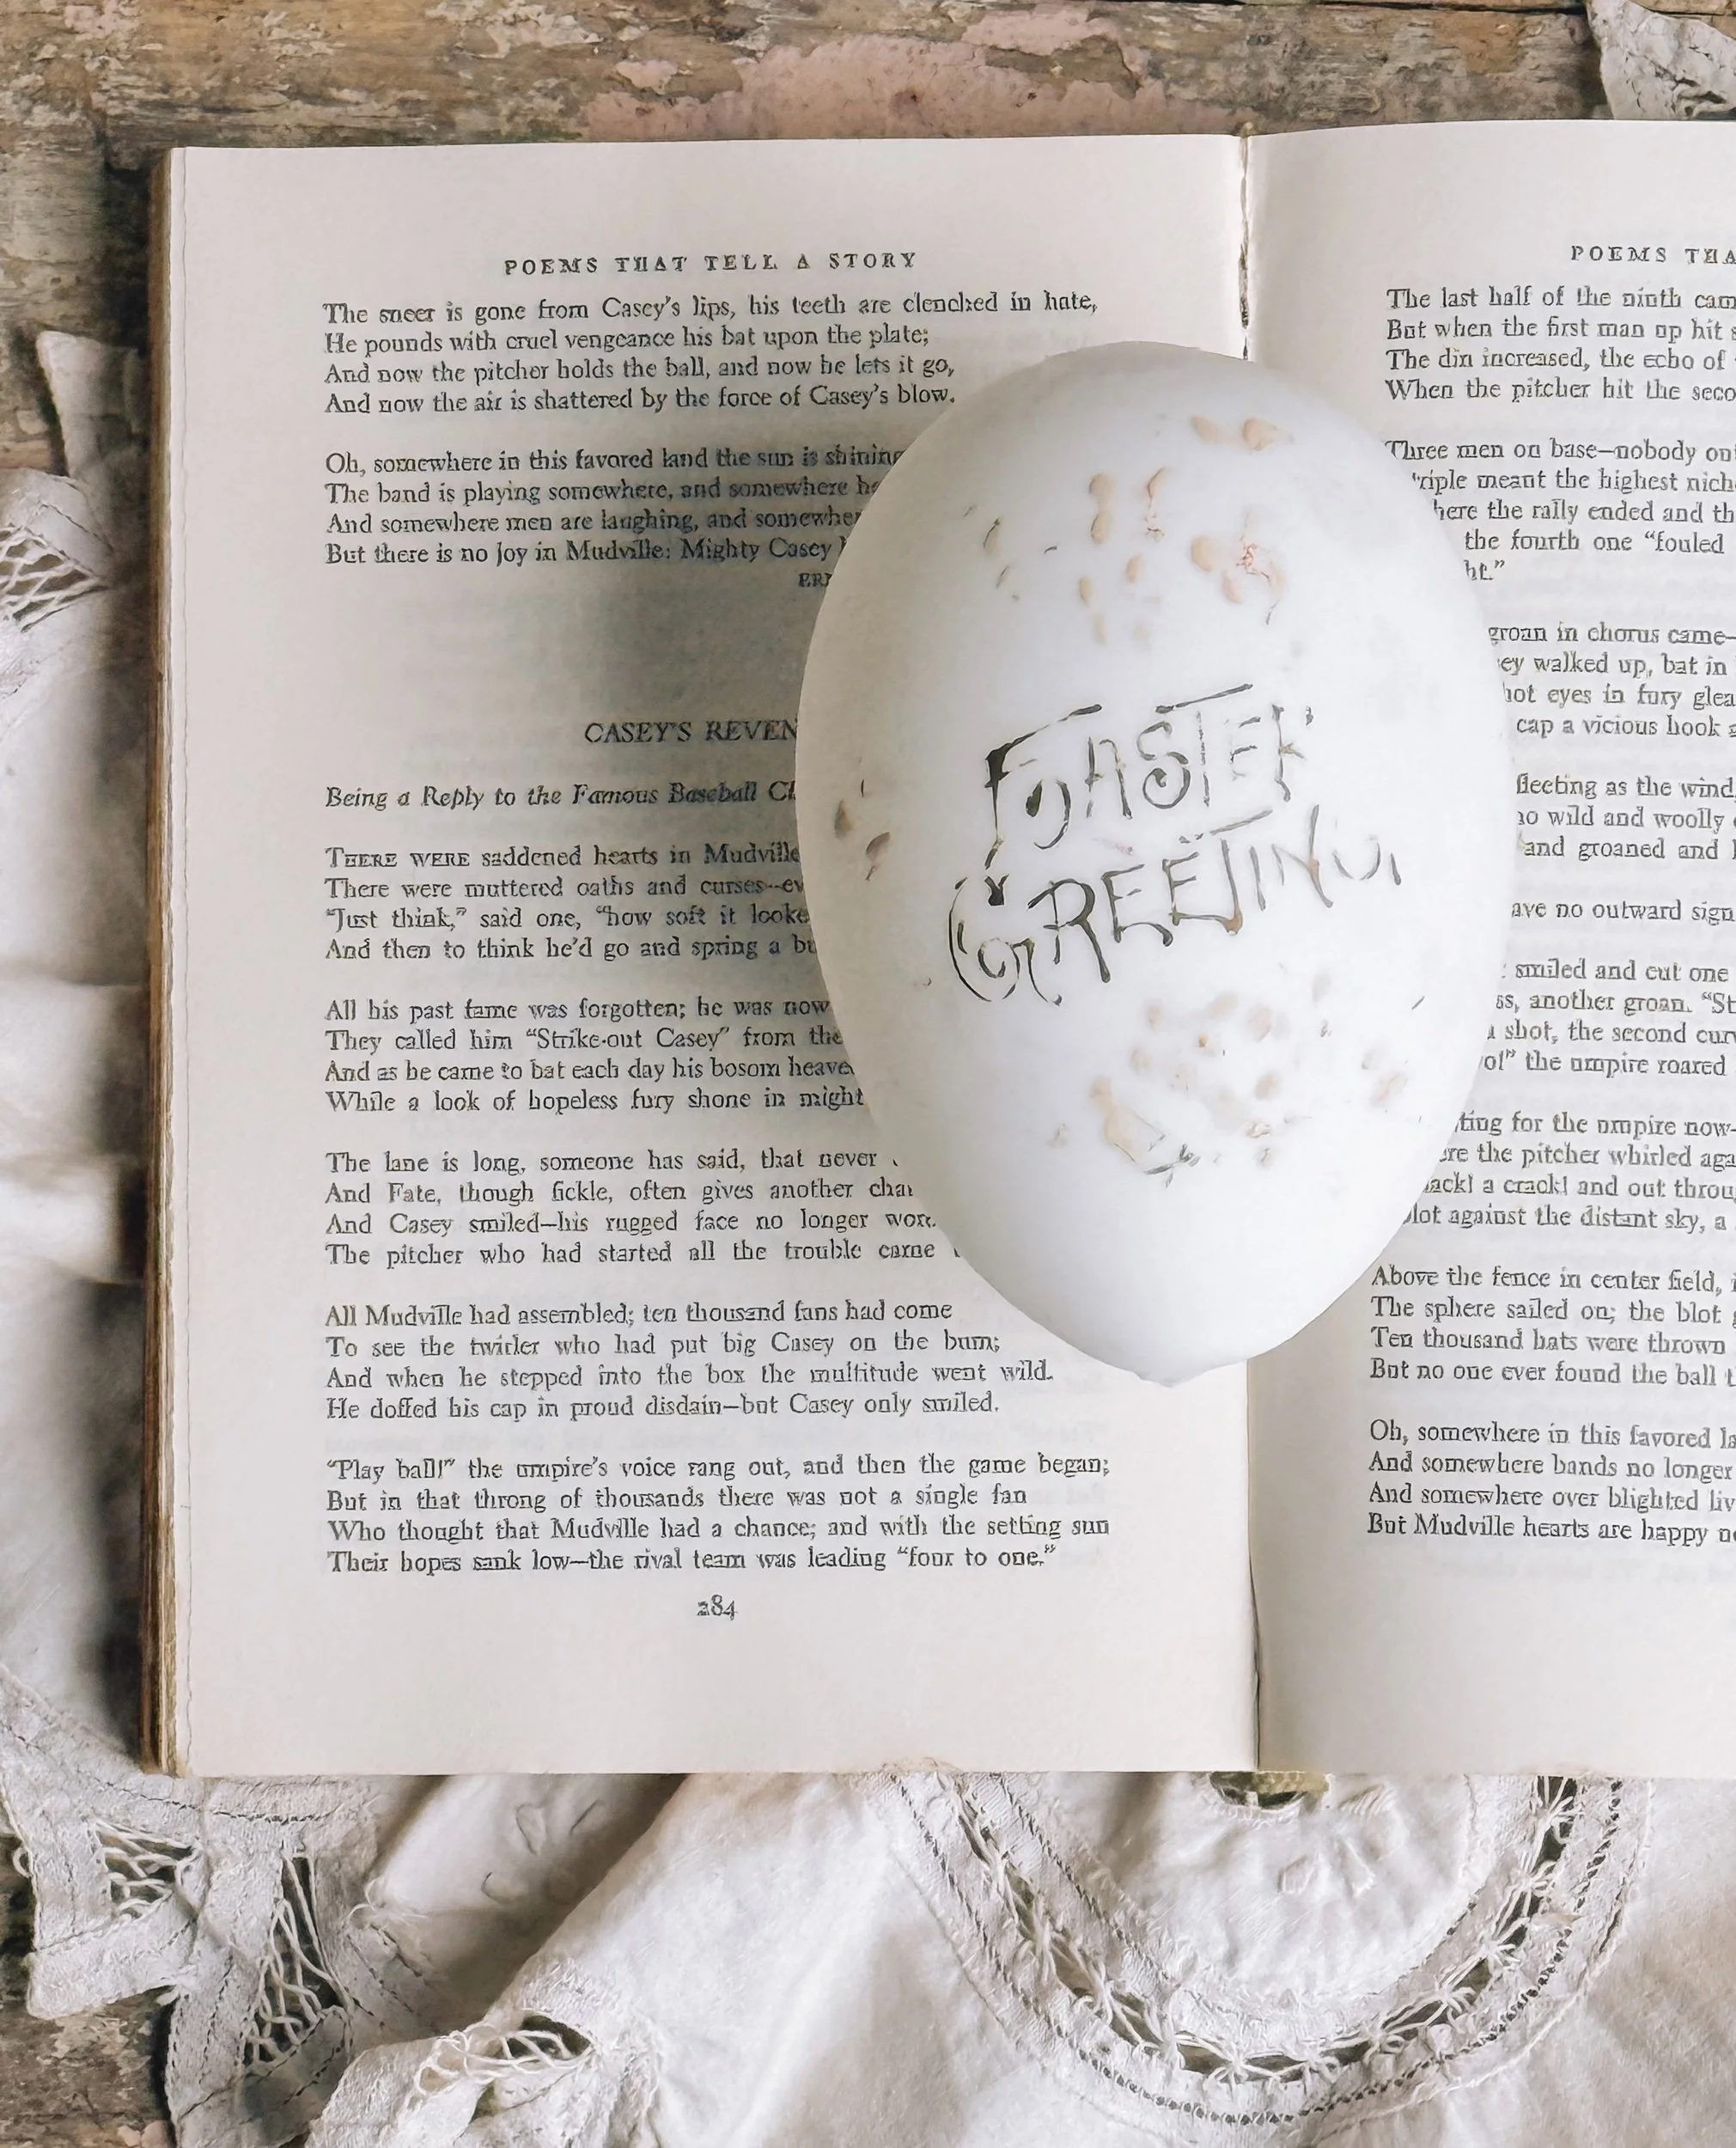 POEMS THAT TELL A STORY
The sneer is gone from Casey's lips, his teeth are clenched in hate,
He pounds with cruel vengeance his bat upon the plate;
And now the pitcher holds the ball, and now he lets it go,
And now the air is shattered by the force of Casey's blow.
Oh, somewhere in this favored land the sun is shining
The band is playing somewhere, and somewhere
And somewhere men are laughing, and somewher
But there is no joy in Mudville: Mighty Casey
CASEY'S REVEN
Being a Reply to the Famous Baseball
THERE WERE saddened hearts in Mudville
There were muttered oaths and curses—ev
"Just think," said one, "how soft it looke
And then to think he'd go and spring a
All his past fame was forgotten; he was now
They called him "Strike-out Casey" from the
And as he came to bat each day his bosom heave
While a look of hopeless fury shone in might
The lane is long, someone has said, that never
And Fate, though fickle, often gives another
And Casey smiled—his rugged face no longer
The pitcher who had started all the trouble came
All Mudville had assembled; ten thousand fans had come
To see the twirler who had put big Casey on the bum;
And when he stepped into the box the multitude went wild.
He doffed his cap in proud disdain—but Casey only smiled.
"Play ball!" the umpire's voice rang out, and then the game began;
But in that throng of thousands there was not a single fan
Who thought that Mudville had a chance; and with the setting sun
Their hopes sank low—the rival team was leading "four to one."
284
EASTER
GREETING
POEMS THA
The last half of the ninth cam
But when the first man up hit
The din increased, the echo of
When the pitcher hit the seco
Three men on base—nobody
triple meant the highest nich
here the rally ended and th
the fourth one "fouled
ht."
groan in chorus came—
ey walked up, bat in
hot eyes in fury glea
cap a vicious hook
fleeting as the wind
no wild and woolly
and groaned and
ave no outward sign
smiled and cut one
ss, another groan. "St
shot, the second curv
the umpire roared
ting for the umpire now—
ere the pitcher whirled aga
ack! a crack! and out throu
lot against the distant sky, a
Above the fence in center field,
The sphere sailed on; the blot
Ten thousand hats were thrown
But no one ever found the ball
Oh, somewhere in this favored
And somewhere bands no longer
And somewhere over blighted liv
But Mudville hearts are happy